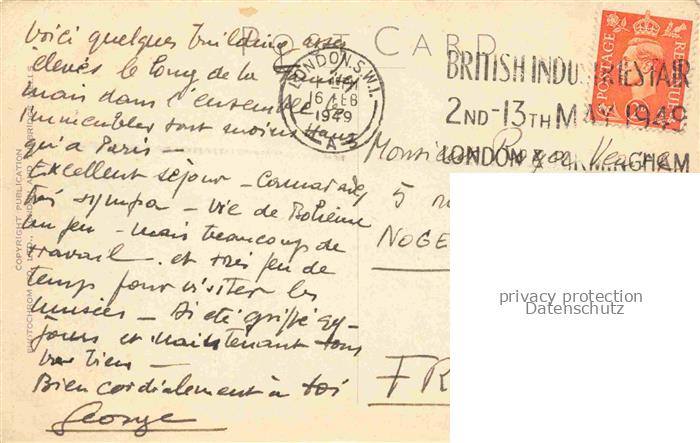 POST CARD
Voici quelques building assez
élevés le long de la Tamise
mais dans l'ensemble les
immeubles sont moins hauts
qu'à Paris —
Excellent séjour — Camarades
très sympa — Vie de Bohème
un peu — mais beaucoup de
travail et très peu de
temps pour visiter les
musées — Ai été grippé qq
jours et maintenant tous
va bien —
Bien cordialement à toi
George
LONDON. S.W.1.
16 FEB
1949
A
BRITISH INDUSTRIES FAIR
2ND-13TH MAY 1949
LONDON & BIRMINGHAM
POSTAGE REVENUE
Monsieur
5
NOGE
FR
COPYRIGHT PUBLICATION
PHOTOCHROM CO. LTD., LONDON AND TUNBRIDGE WELLS
privacy protection
Datenschutz